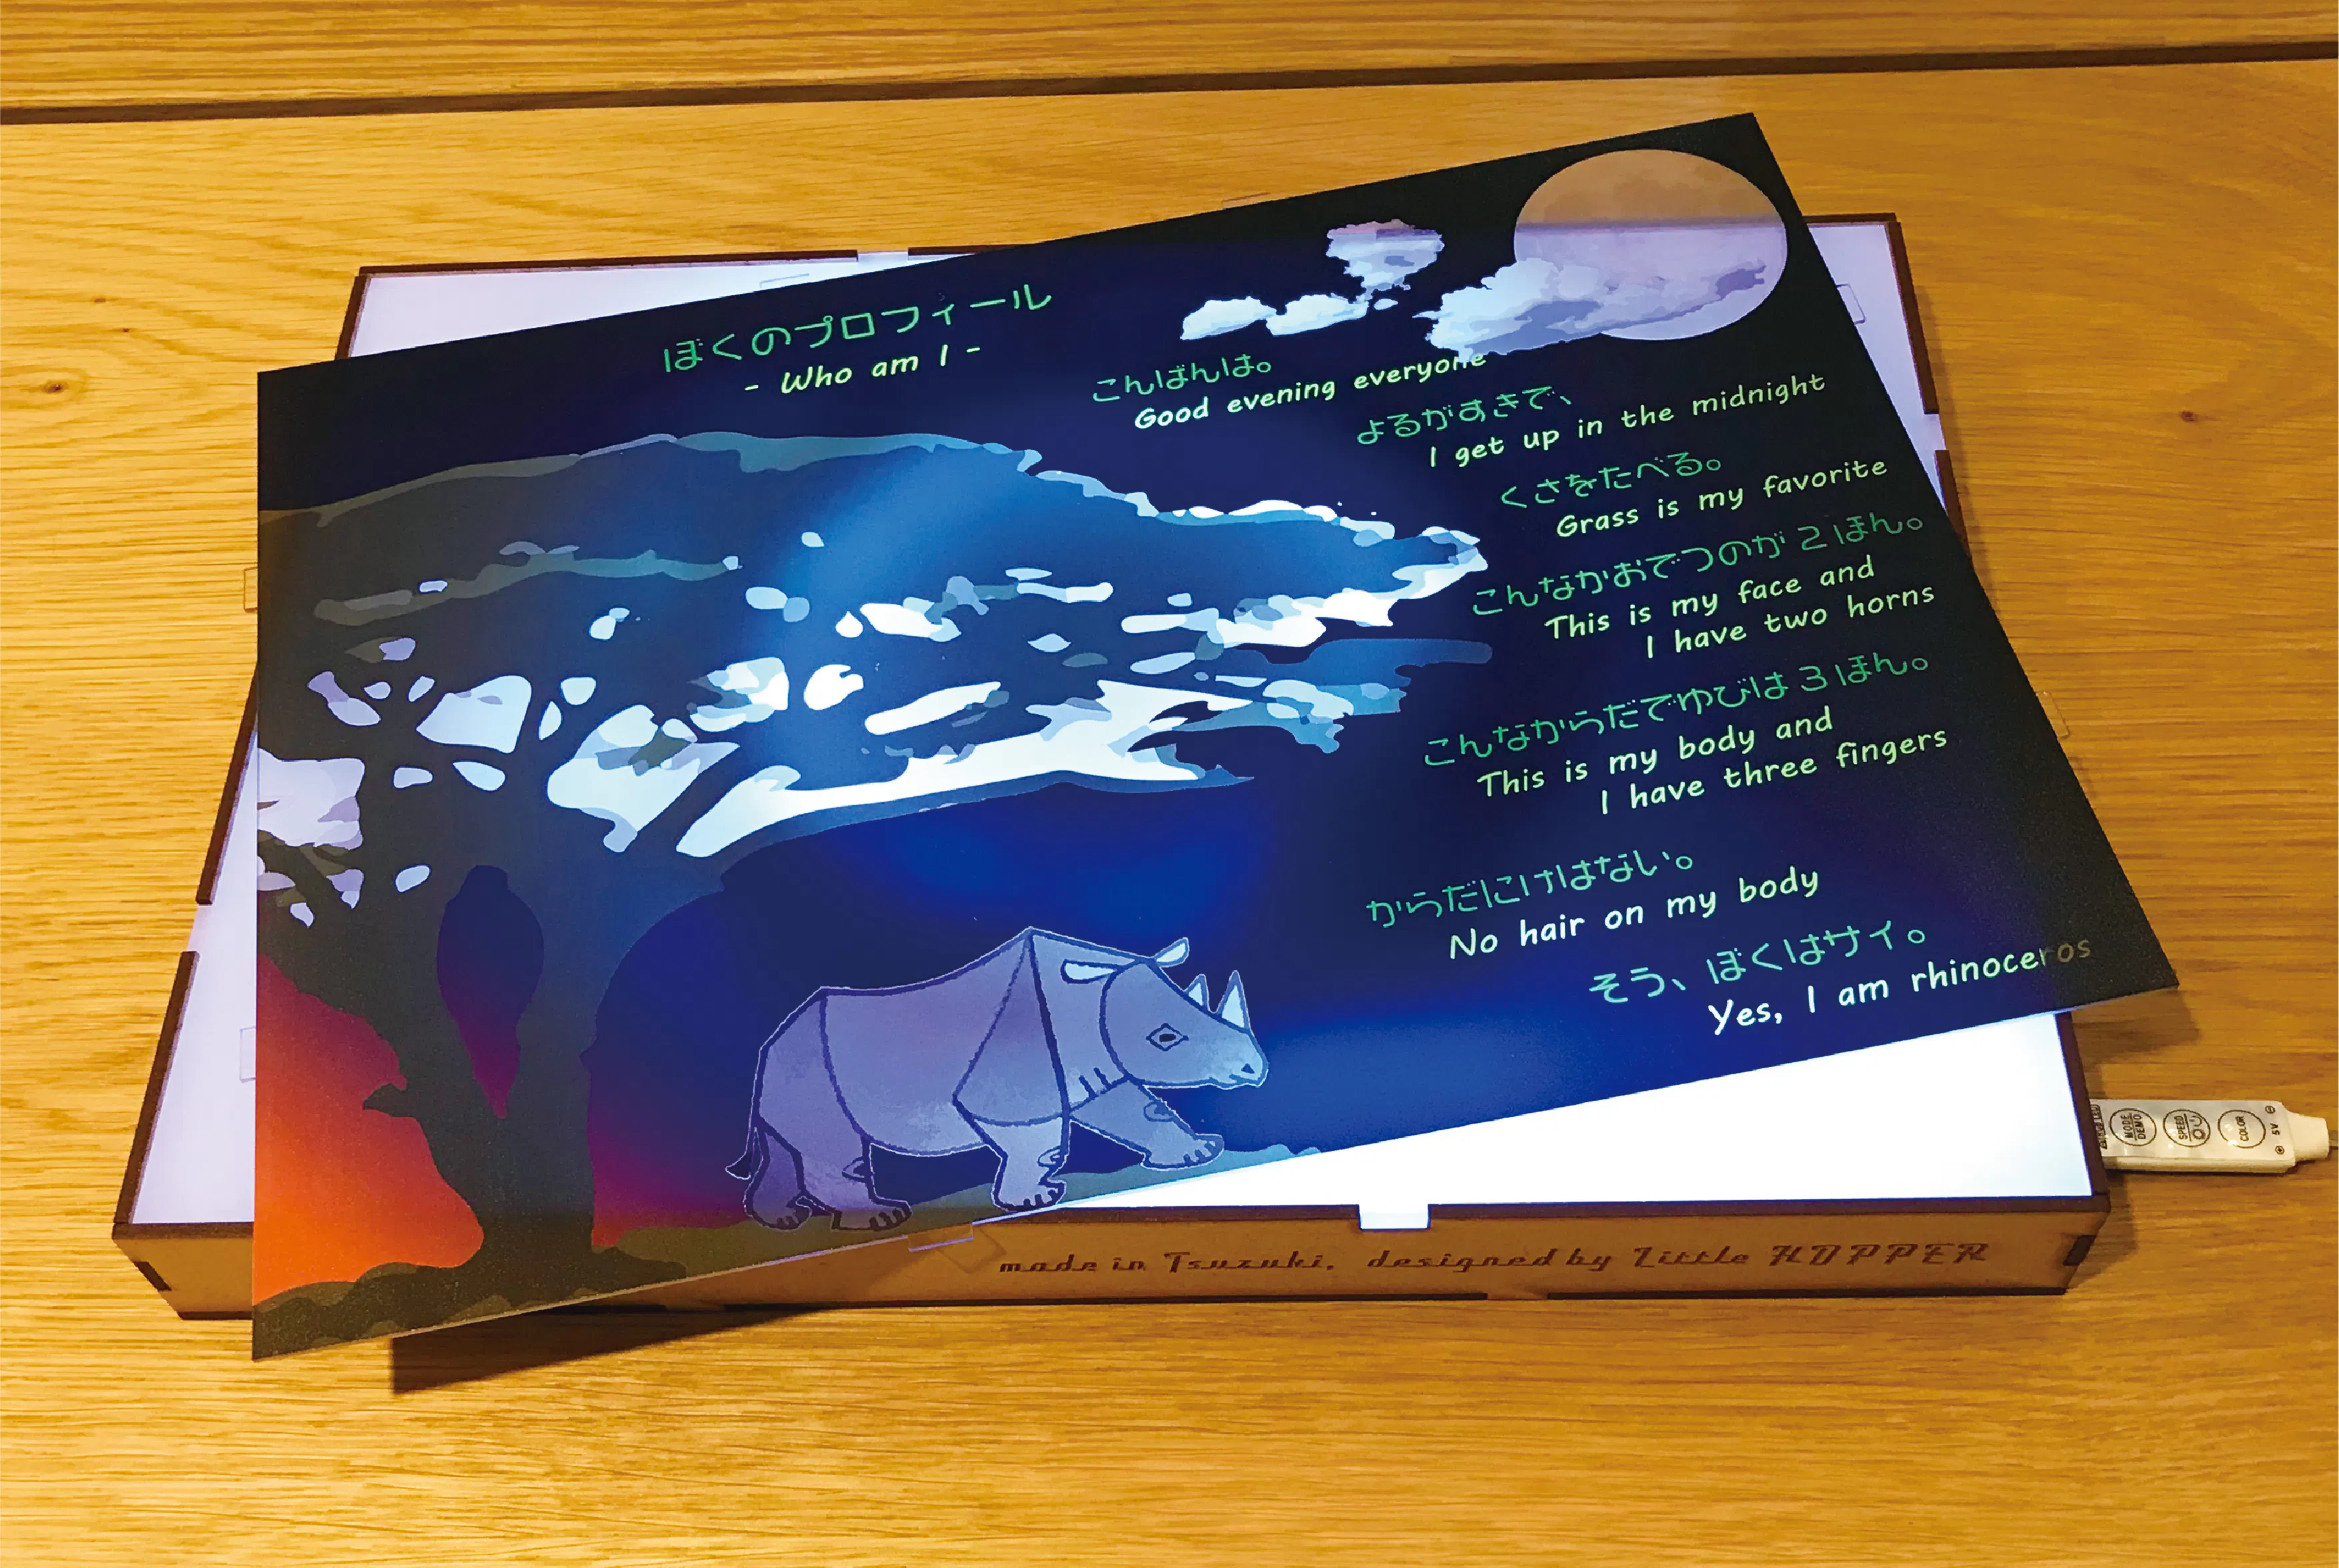 ぼくのプロフィール
- Who am I -
こんばんは。
Good evening everyone
よるがすきで、
I get up in the midnight
くさをたべる。
Grass is my favorite
こんなかおでつのが2ほん。
This is my face and
I have two horns
こんなからだでゆびは3ぼん。
This is my body and
I have three fingers
からだにけはない。
No hair on my body
そう、ぼくはサイ。
Yes, I am rhinoceros
MODE DEMO
SPEED
COLOR
5V
made in Tsuzuki. designed by Little HOPPER